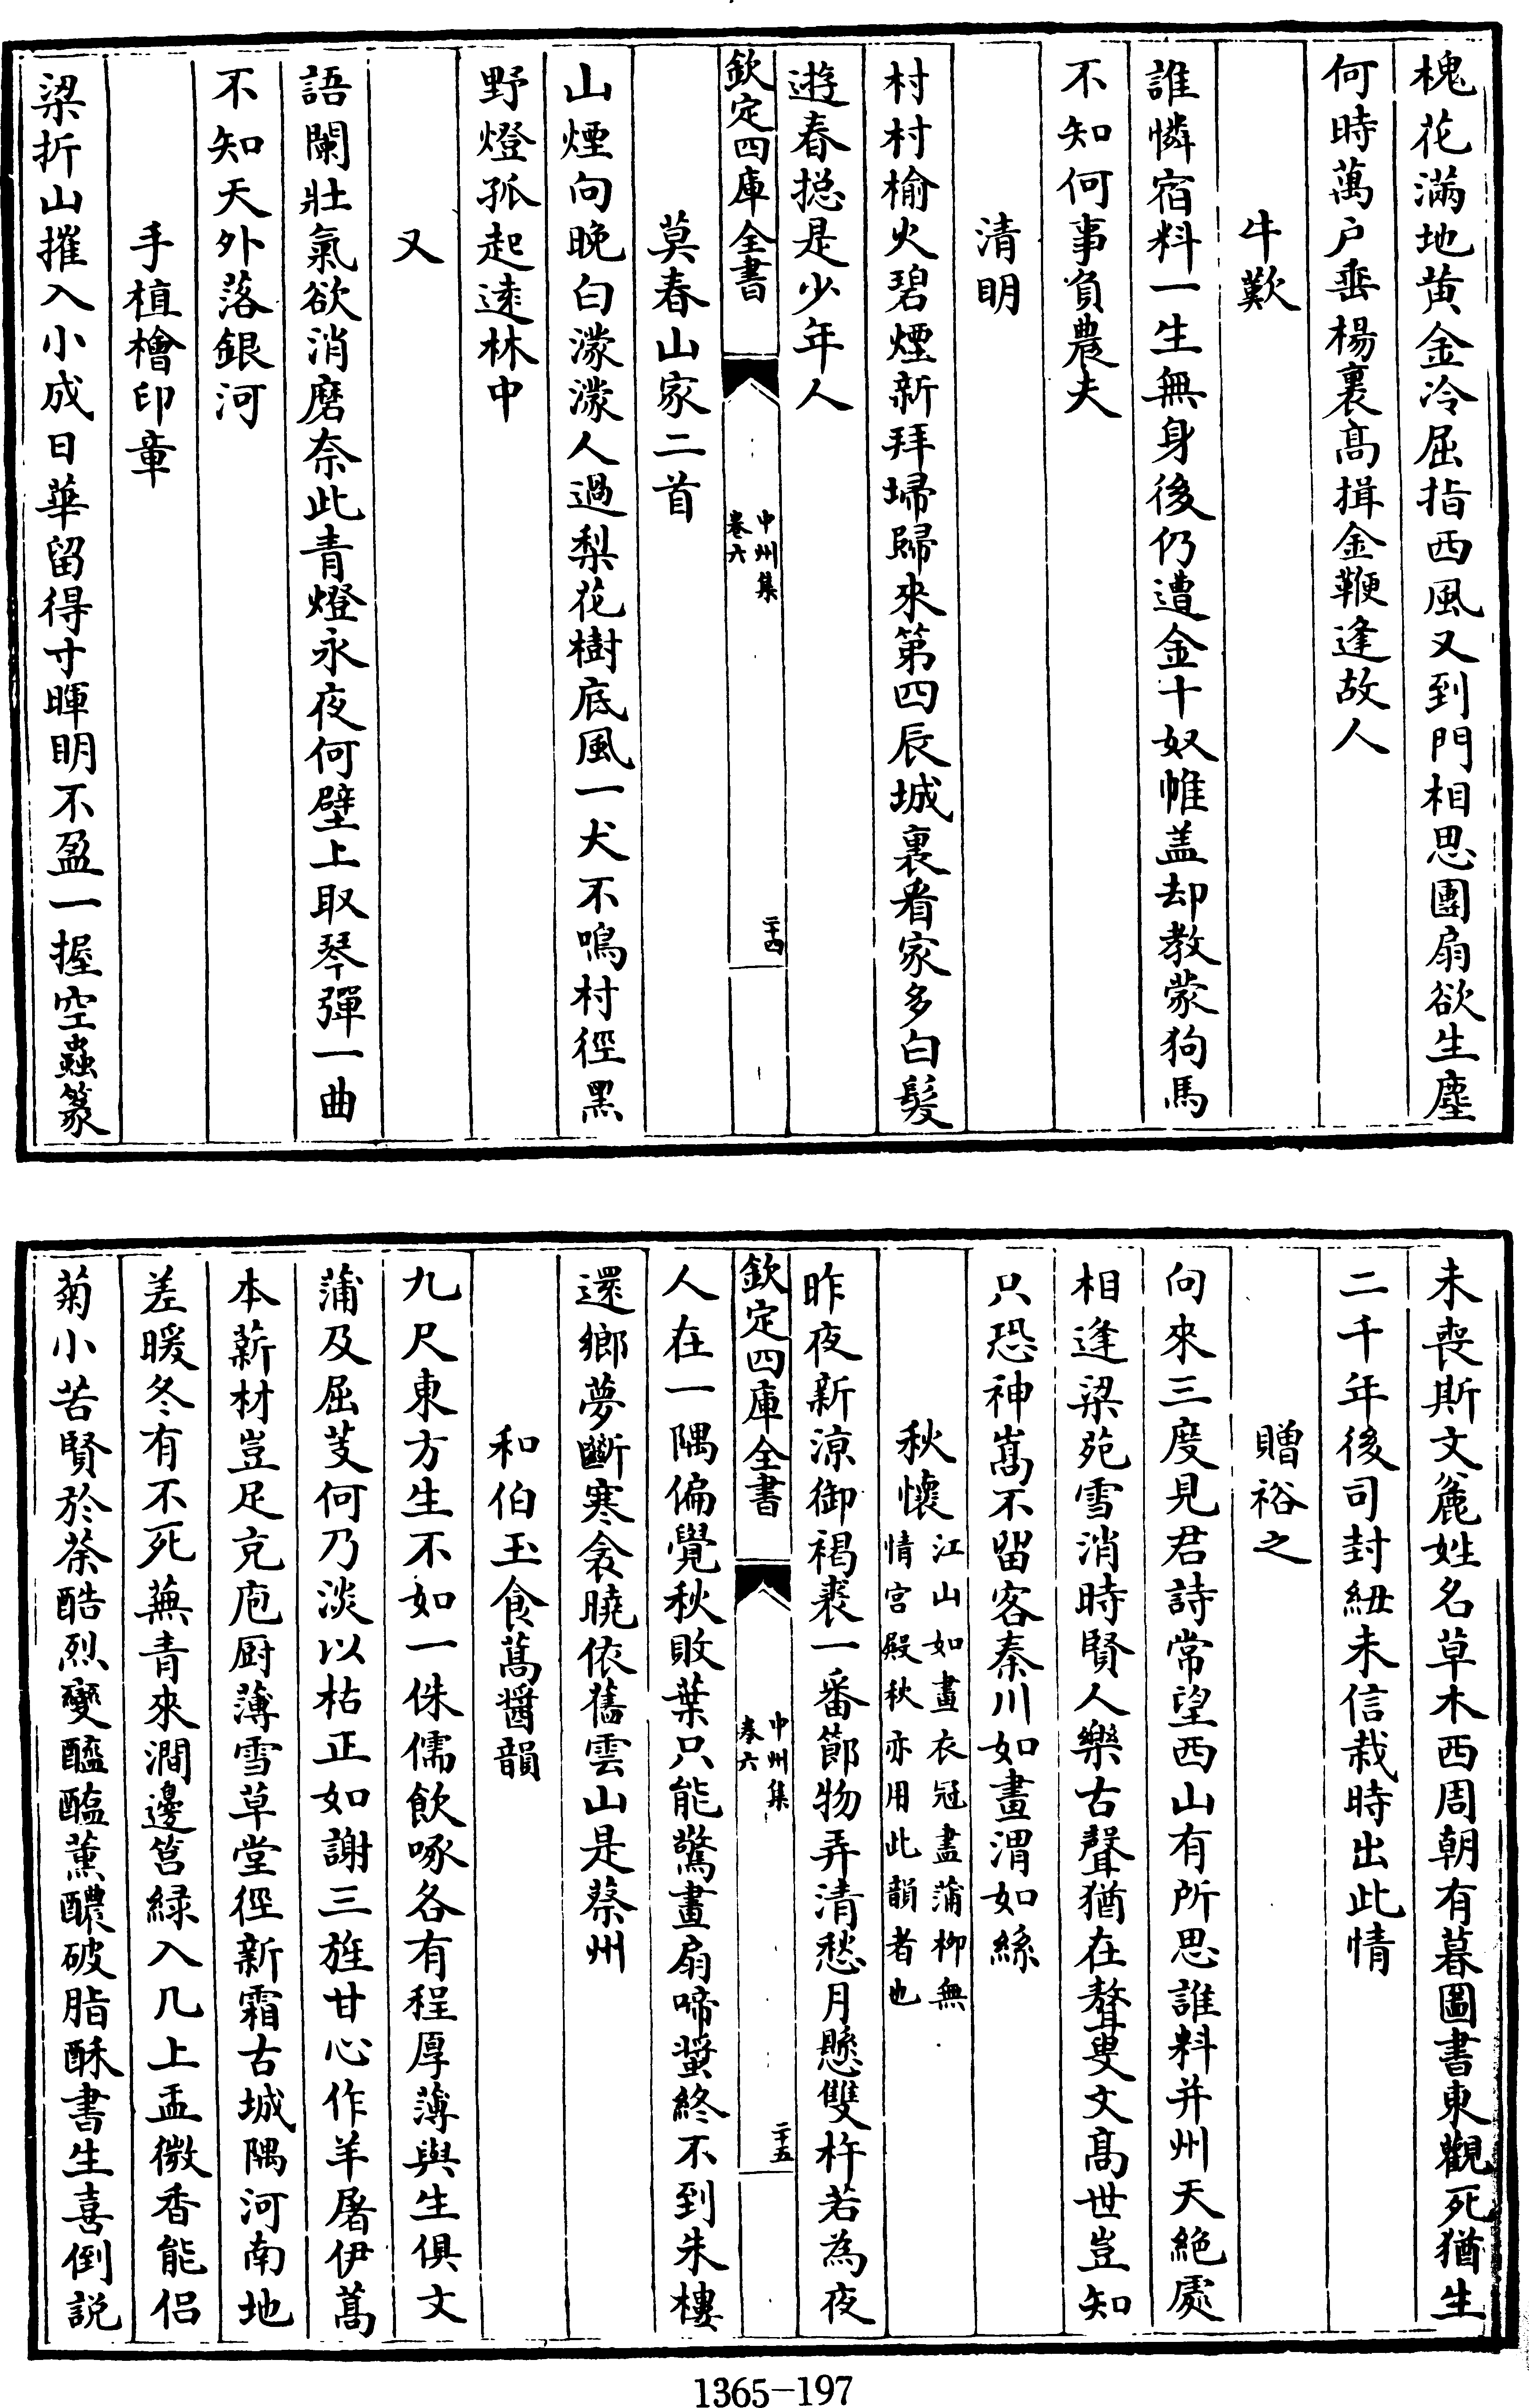 槐花滿地黄金冷屈指西風又到門相思團扇欲生塵
何時萬户垂楊裏髙揖金鞭逢故人
牛歎
誰憐宿料一生無身後仍遭金十奴帷盖却教蒙狗馬
不知何事負農夫
清明
村村榆火碧煙新拜埽歸來第四辰城裏看家多白髮
遊春捴是少年人
欽定四庫全書
中州集
卷六
二十四
莫春山家二首
山煙向晚白濛濛人過梨花樹底風一犬不鳴村徑黑
野燈孤起逺林中
又
語闌壯氣欲消磨奈此青燈永夜何壁上取琴彈一曲
不知天外落銀河
手植檜印章
梁折山摧入小成日華留得寸暉明不盈一握空蟲篆
未喪斯文麄姓名草木西周朝有暮圖書東觀死猶生
二千年後司封紐未信栽時出此情
贈裕之
向來三度見君詩常望西山有所思誰料并州天絶處
相逢梁苑雪消時賢人樂古聲猶在聱叟文髙世豈知
只恐神嵩不留客秦川如畫渭如絲
秋懷
江山如畫衣冠盡蒲柳無
情宫殿秋亦用此韻者也
昨夜新涼御褐裘一番節物弄清愁月懸雙杵若為夜
欽定四庫全書
中州集
卷六
二十五
人在一隅偏覺秋敗葉只能驚畫扇啼螿終不到朱樓
還鄉夢斷寒衾曉依舊雲山是蔡州
和伯玉食蒿醬韻
九尺東方生不如一侏儒飲啄各有程厚薄與生俱文
蒲及屈芰何乃淡以枯正如謝三旌甘心作羊屠伊蒿
本薪材豈足充庖厨薄雪草堂徑新霜古城隅河南地
差暖冬有不死蕪青來澗邊筥緑入几上盂微香能侣
菊小苦賢於荼酷烈變醯醢薰醲破脂酥書生喜倒説
1365-197